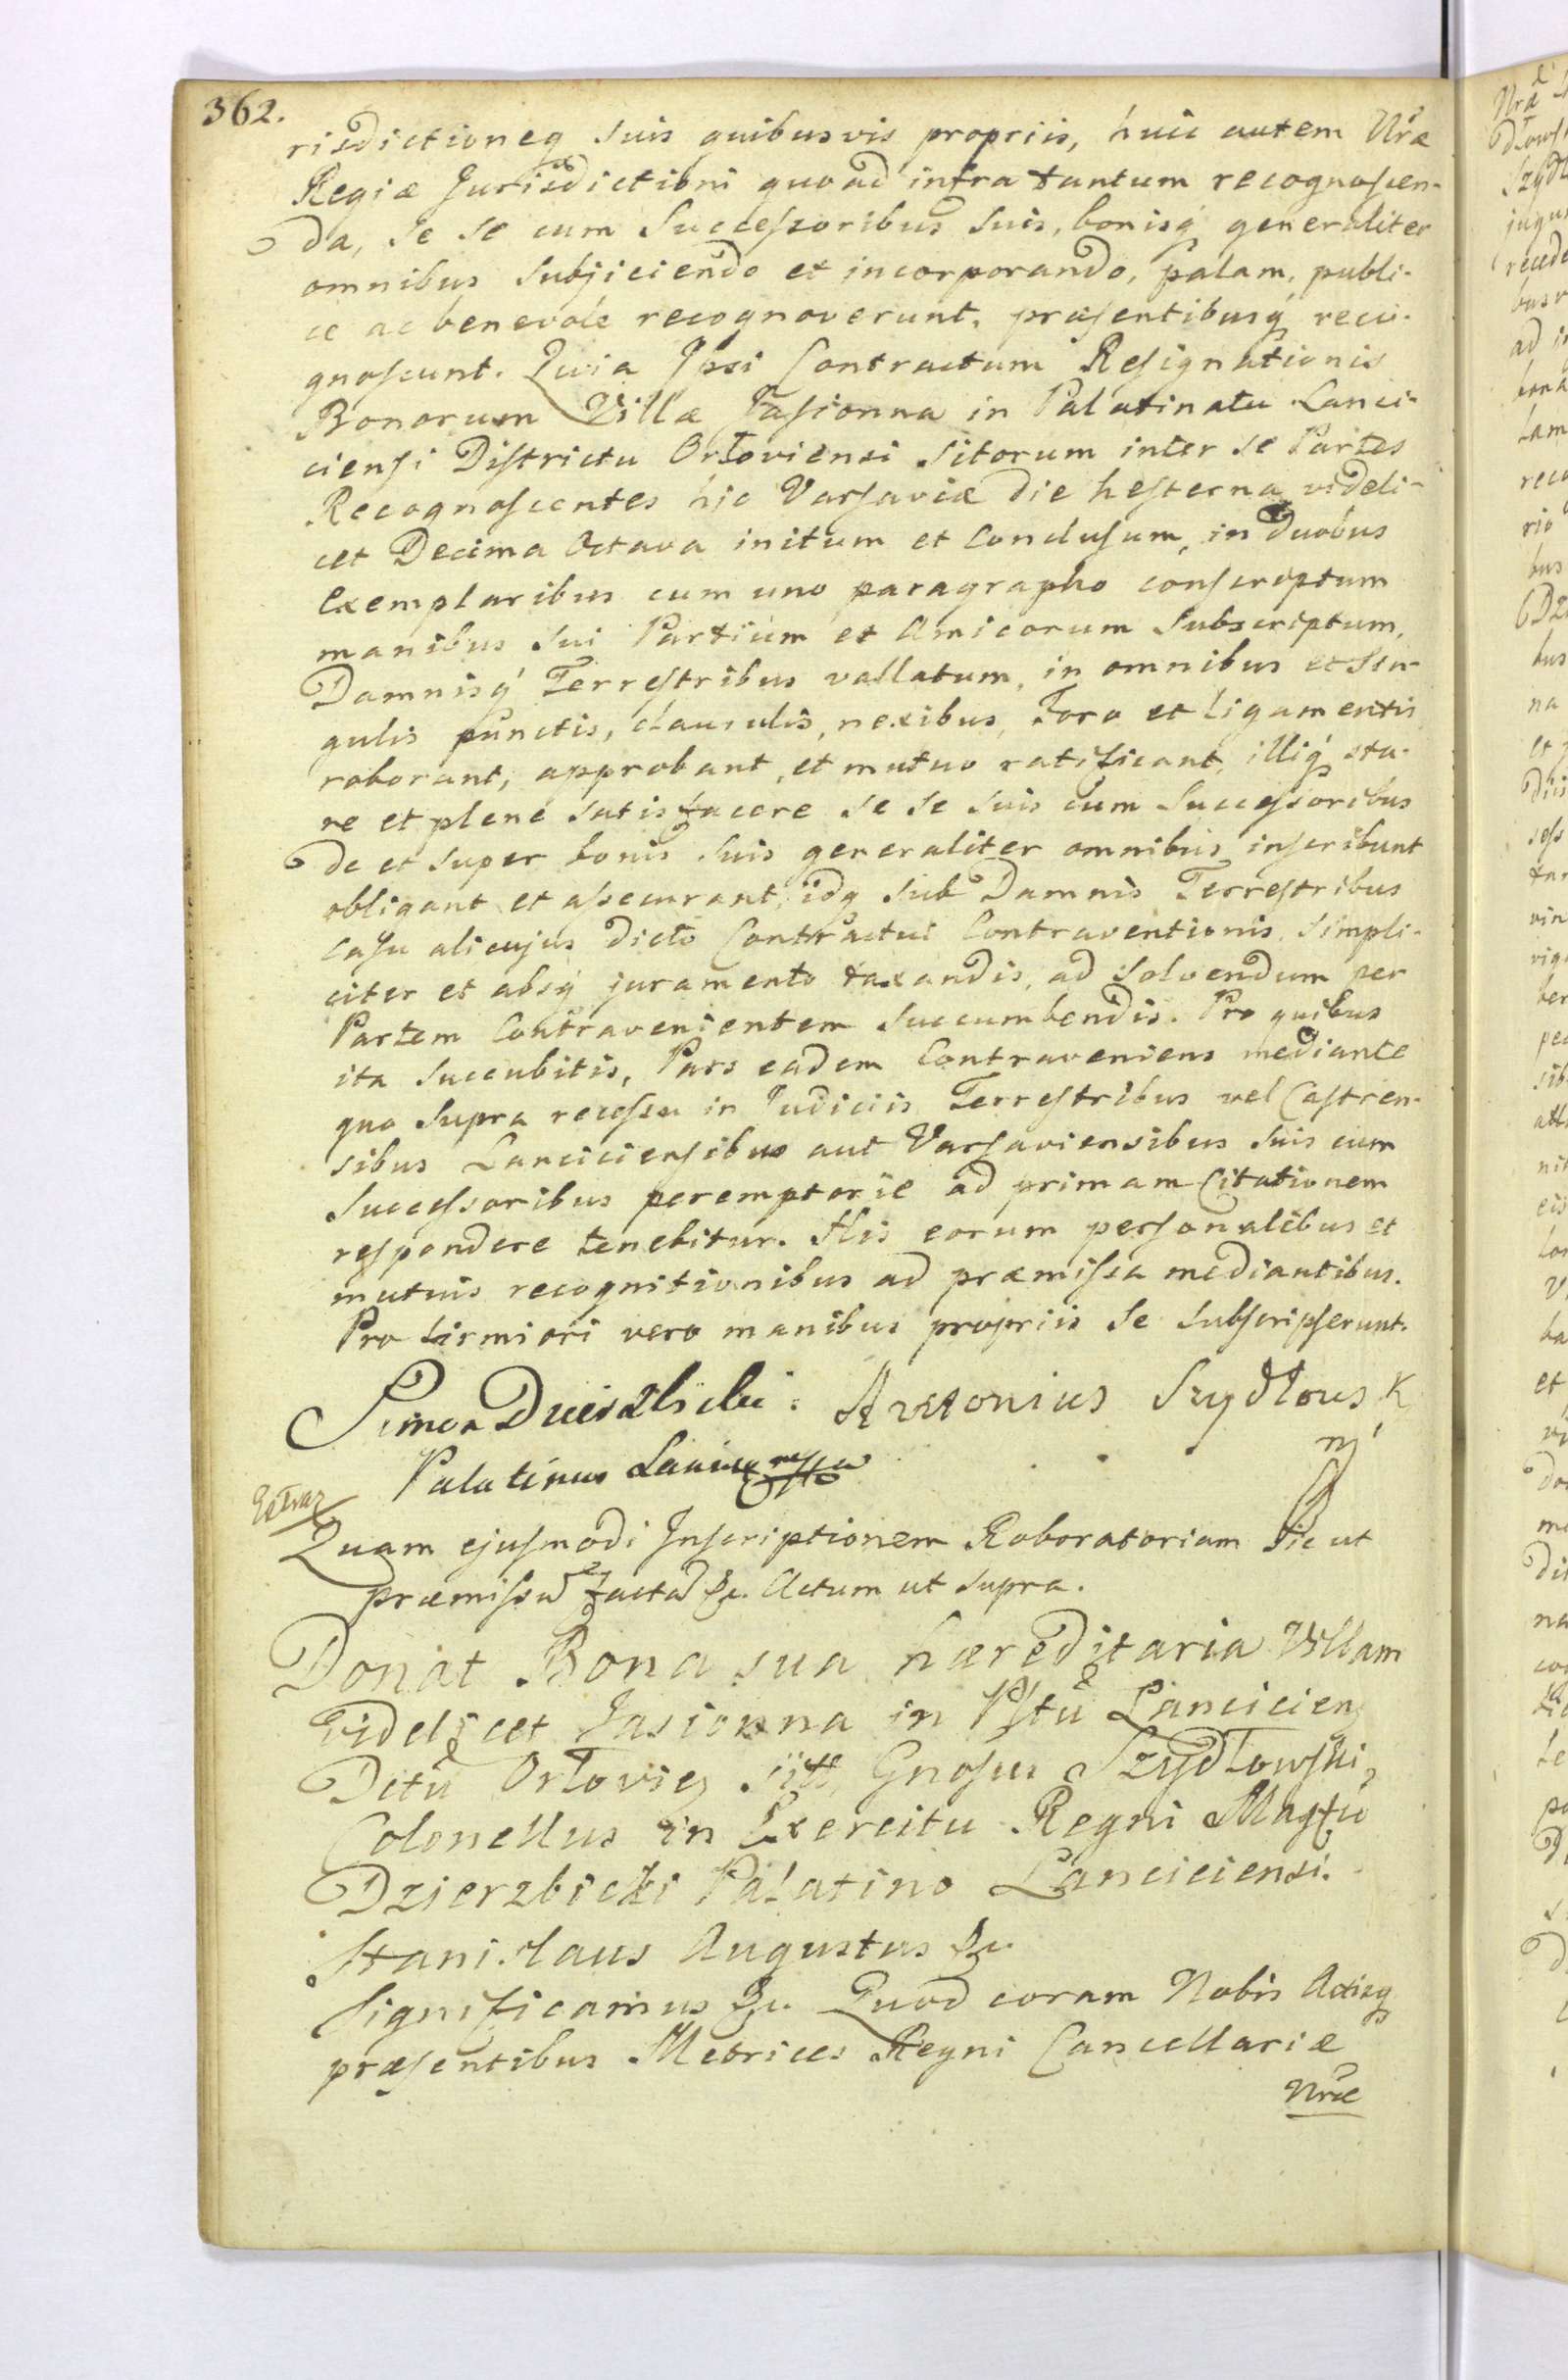 362.
risdictioneq suis quibusvis propriis, huic autem Nr̃æ
Regiæ Jurisdictioni quoad infra tantum recognoscen-
da, se se cum Successoribus suis, bonisq́ generaliter
omnibus Subjiciendo et incorporando, palam, publi-
ce ac benevole recognoverunt, præsentibusq́ reco-
gnoscunt. Quia Ipsi Contractum Resignationis
Bonorum Villæ Jasionna in Palatinatu Lanci-
ciensi Districtu Orłoviensi sitorum inter se Partes
Recognoscentes hic Varsaviæ die hesterna videli-
cet Decima Octava initum et Conclusum, in duobus
Exemplaribus cum uno paragrapho conscriptum
manibus sui Partium et Amicorum Subscriptum,
Damnisq́ Terrestribus vallatum, in omnibus et sin-
gulis punctis, clausulis, nexibus, foro et ligamentis
roborant, approbant, et mutuo ratificant, illiq́ sta-
re et plene satisfacere se se suis cum Successoribus
de et super bonis suis generaliter omnibus inscribunt
obligant et assecurant, idq sub Damnis Terrestribus
casu alicujus dicto Contractui Contraventionis, simpli-
citer et absq́ juramento taxandis, ad solvendum per
Partem Contravenientem succumbendis. Pro quibus
ita succubitis, Pars eadem Contraveniens mediante
quo supra recessu in Judiciis Terrestribus vel Castren-
sibus Lanciciensibus aut Varsaviensibus suis cum
Successoribus peremptorie ad primam Citationem
respondere tenebitur. His eorum personalibus et
mutuis recognitionibus ad præmissa mediantibus.
Pro firmiori vero manibus propriis se subscripserunt.
Simon Dzierzbicki. Antonius Szydłowsk
Palatinus mp
Extrad
Quam ejusmodi Inscriptionem Roboratoriam sic ut
præmissũ factã &c. Actum ut supra.
Donat Bona sua hæreditaria Villam
videlicet Jasionna in Pltũ Lancicien
Dctũ Orłovien sitt, Gnosus Szydłowski,
Colonellus in Exercitu Regni Magco
Dzierzbicki Palatino Lanciciensi.
Stanislaus Augustus &c.
Significamus &c. Quod coram Nobis Actisq
præsentibus Metrices Regni Cancellariæ
Nræ